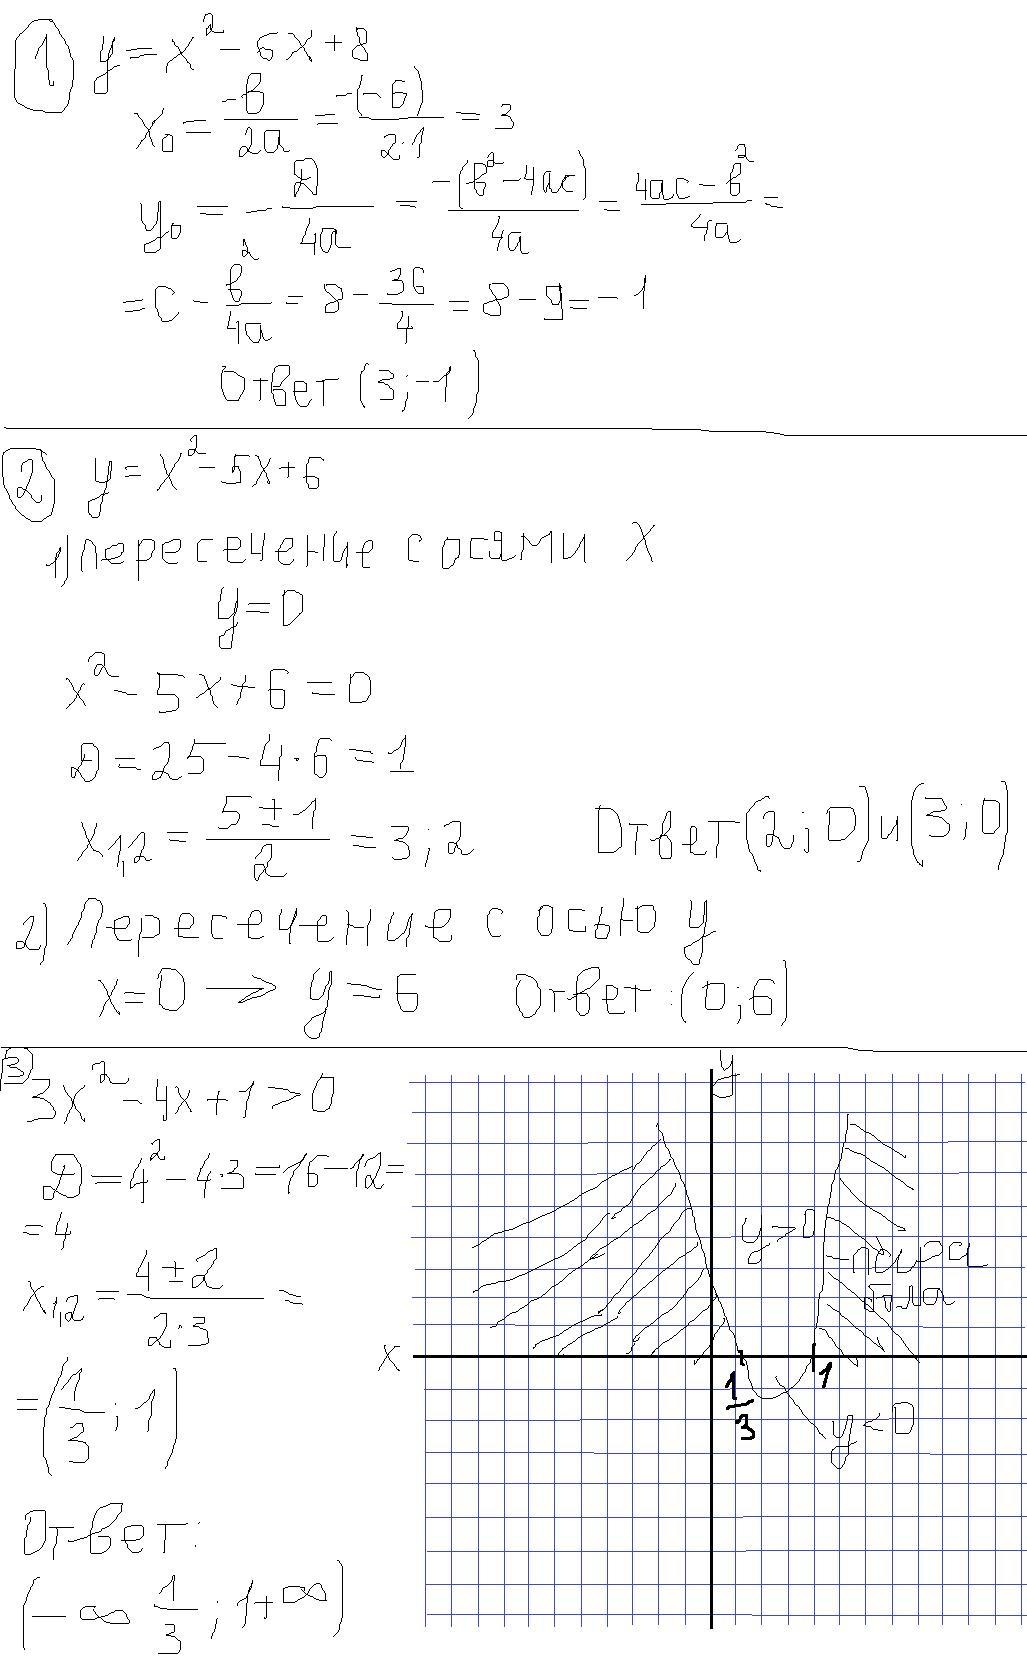 1 y = x² - 6x + 8
x₀ = -в/2a = -(-6)/2·1 = 3
y₀ = - D/4a = -(в² - 4ac)/4a = 4ac - в²/4a =
= c - в²/4a = 8 - 36/4 = 8 - 9 = -1
Ответ (3; -1)
2 y = x² - 5x + 6
1) Пересечение с осями X
y = 0
x² - 5x + 6 = 0
D = 25 - 4·6 = 1
x₁,₂ = 5 ± 1/2 = 3; 2 Ответ (2; 0) и (3; 0)
2) Пересечение с осью y
x = 0 → y = 6 Ответ: (0; 6)
3 3x² - 4x + 1 > 0
D = 4² - 4·3 = 16 - 12 =
= 4
x₁,₂ = 4 ± 2/2·3 =
= (1/3; 1)
Ответ:
(-∞ 1/3; 1+∞)
y
y > 0
- пара
бола
x
1/3
1
y < 0